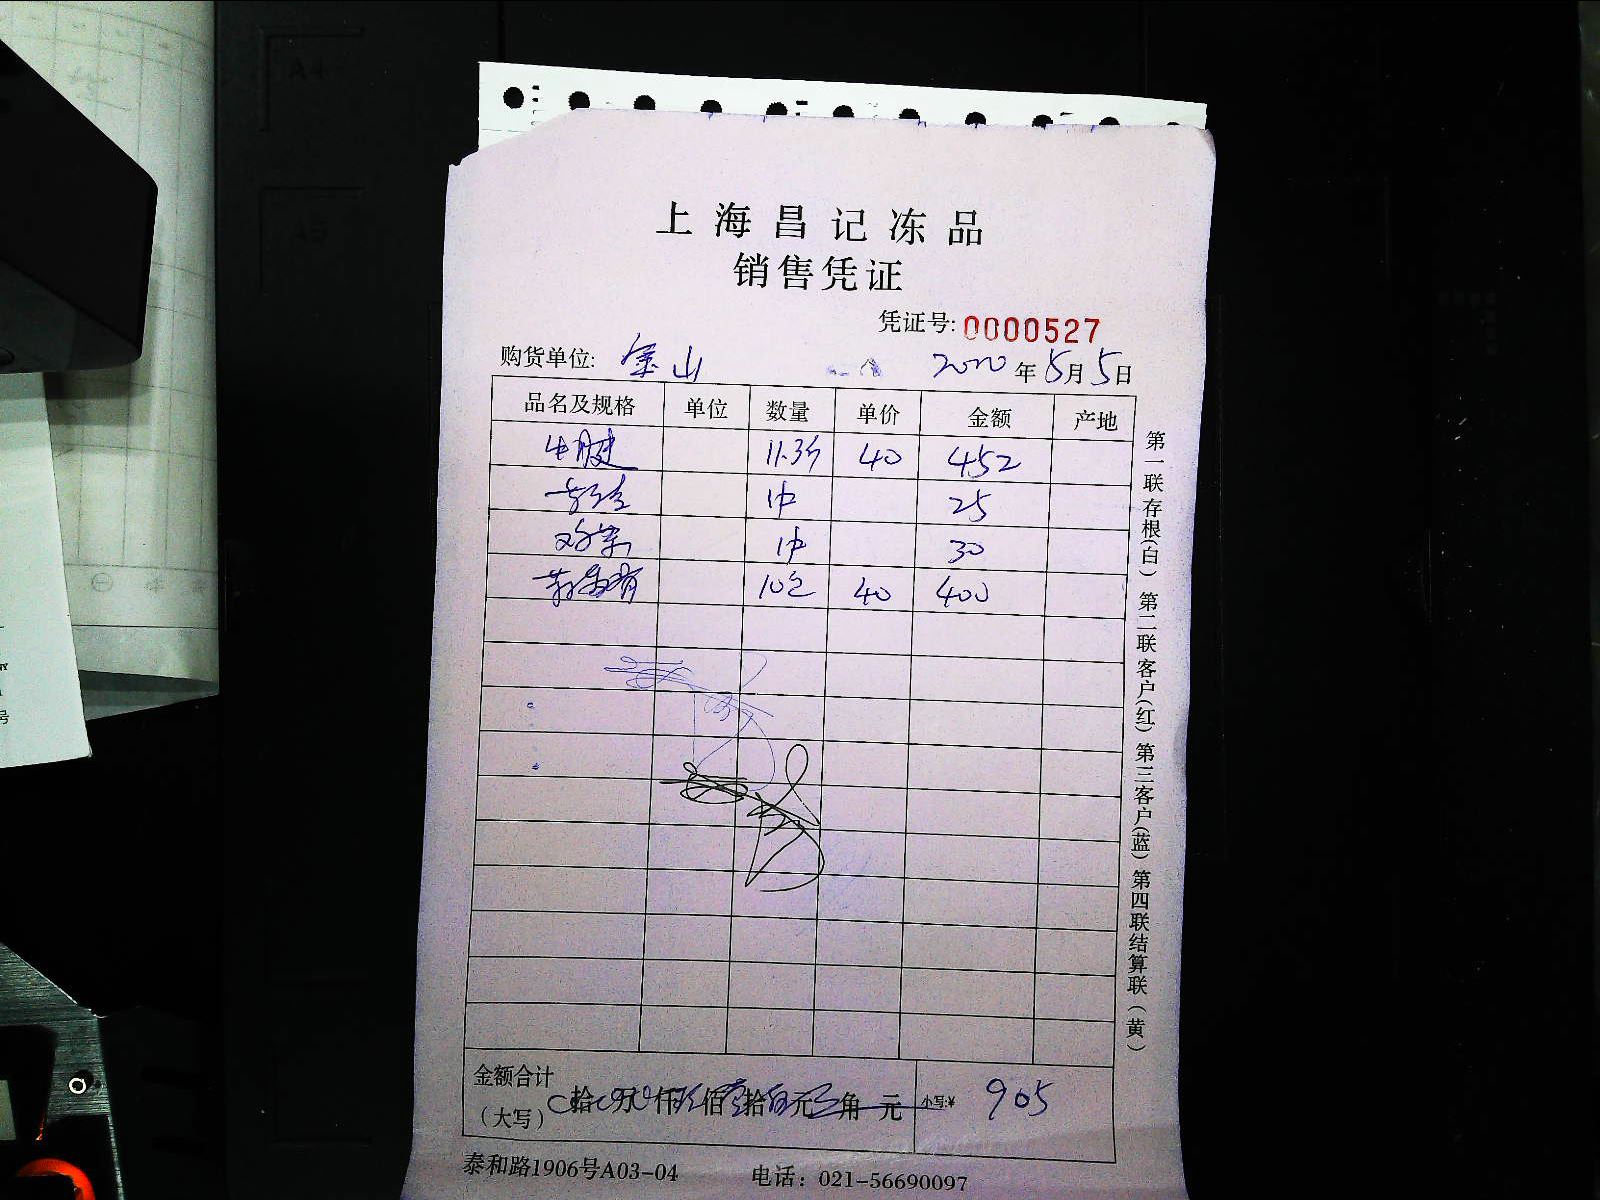 上海昌记冻品
销售凭证
凭证号: 0000527
购货单位: 金山 2020年5月5日
品名及规格 单位 数量 单价 金额 产地
牛腱 11.3斤 40 452
1件 25
鸡 1件 30
10包 40 400
金额合计
(大写) 拾 万 仟 佰 拾 元 角 元 小写:¥ 905
泰和路1906号A03-04 电话: 021-56690097
第一联存根(白) 第二联客户(红) 第三客户(蓝) 第四联结算联(黄)